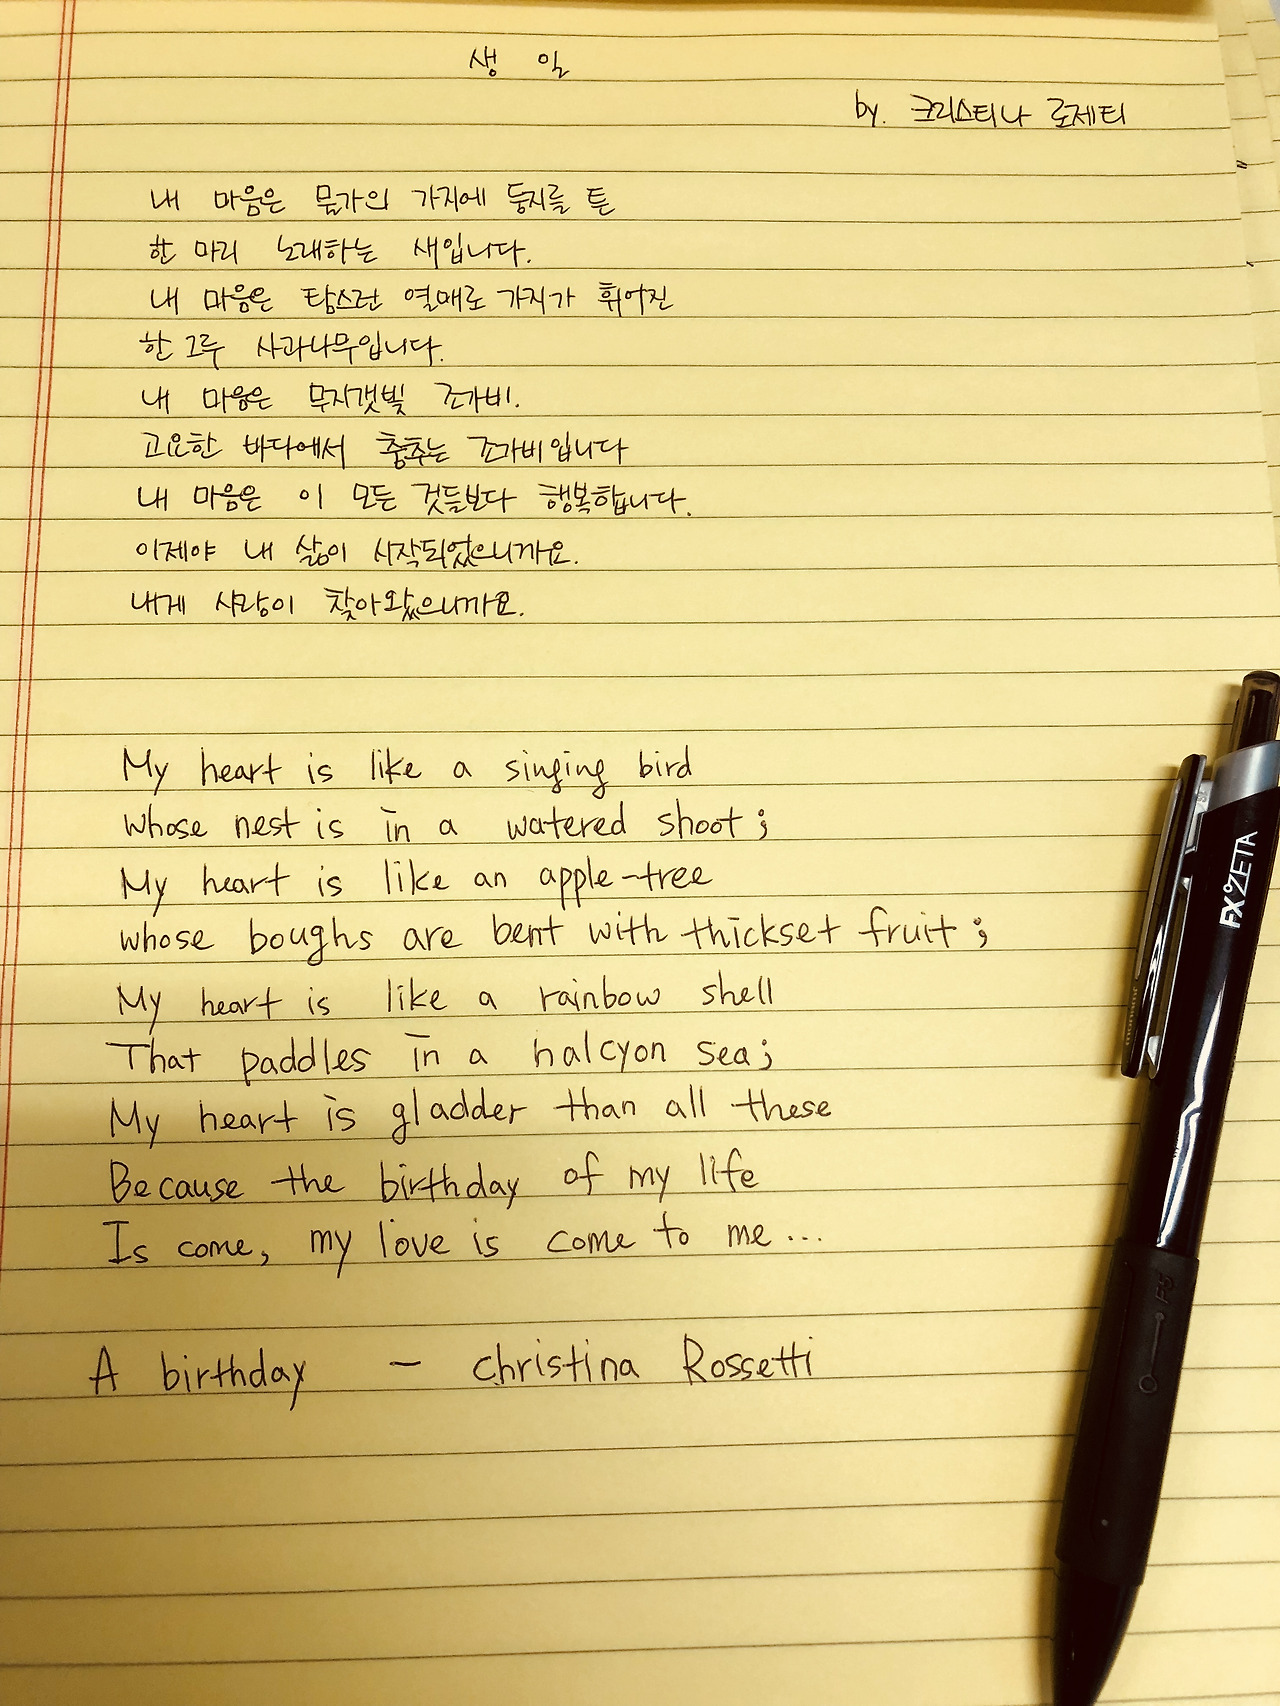 생 일
by. 크리스티나 로제티
내 마음은 물가의 가지에 둥지를 튼
한 마리 노래하는 새입니다.
내 마음은 탐스런 열매로 가지가 휘어진
한 그루 사과나무입니다.
내 마음은 무지갯빛 조가비.
고요한 바다에서 춤추는 조가비입니다
내 마음은 이 모든 것들보다 행복합니다.
이제야 내 삶이 시작되었으니까요.
내게 사랑이 찾아왔으니까요.
My heart is like a singing bird
whose nest is in a watered shoot;
My heart is like an apple-tree
whose boughs are bent with thickset fruit;
My heart is like a rainbow shell
That paddles in a halcyon sea;
My heart is gladder than all these
Because the birthday of my life
Is come, my love is come to me...
A birthday - christina Rossetti
FX ZETA
F5